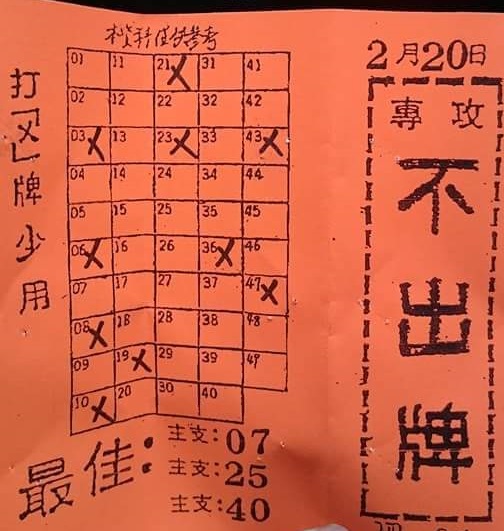 2月20日
專攻
不出牌
打「X」牌少用
資料僅供參考
01 11 21X 31 41
02 12 22 32 42
03X 13 23X 33 43X
04 14 24 34 44
05 15 25 35 45
06X 16 26 36X 46
07 17 27 37 47X
08X 18 28 38 48
09 19X 29 39 49
10X 20 30 40
最佳:
主支:07
主支:25
主支:40